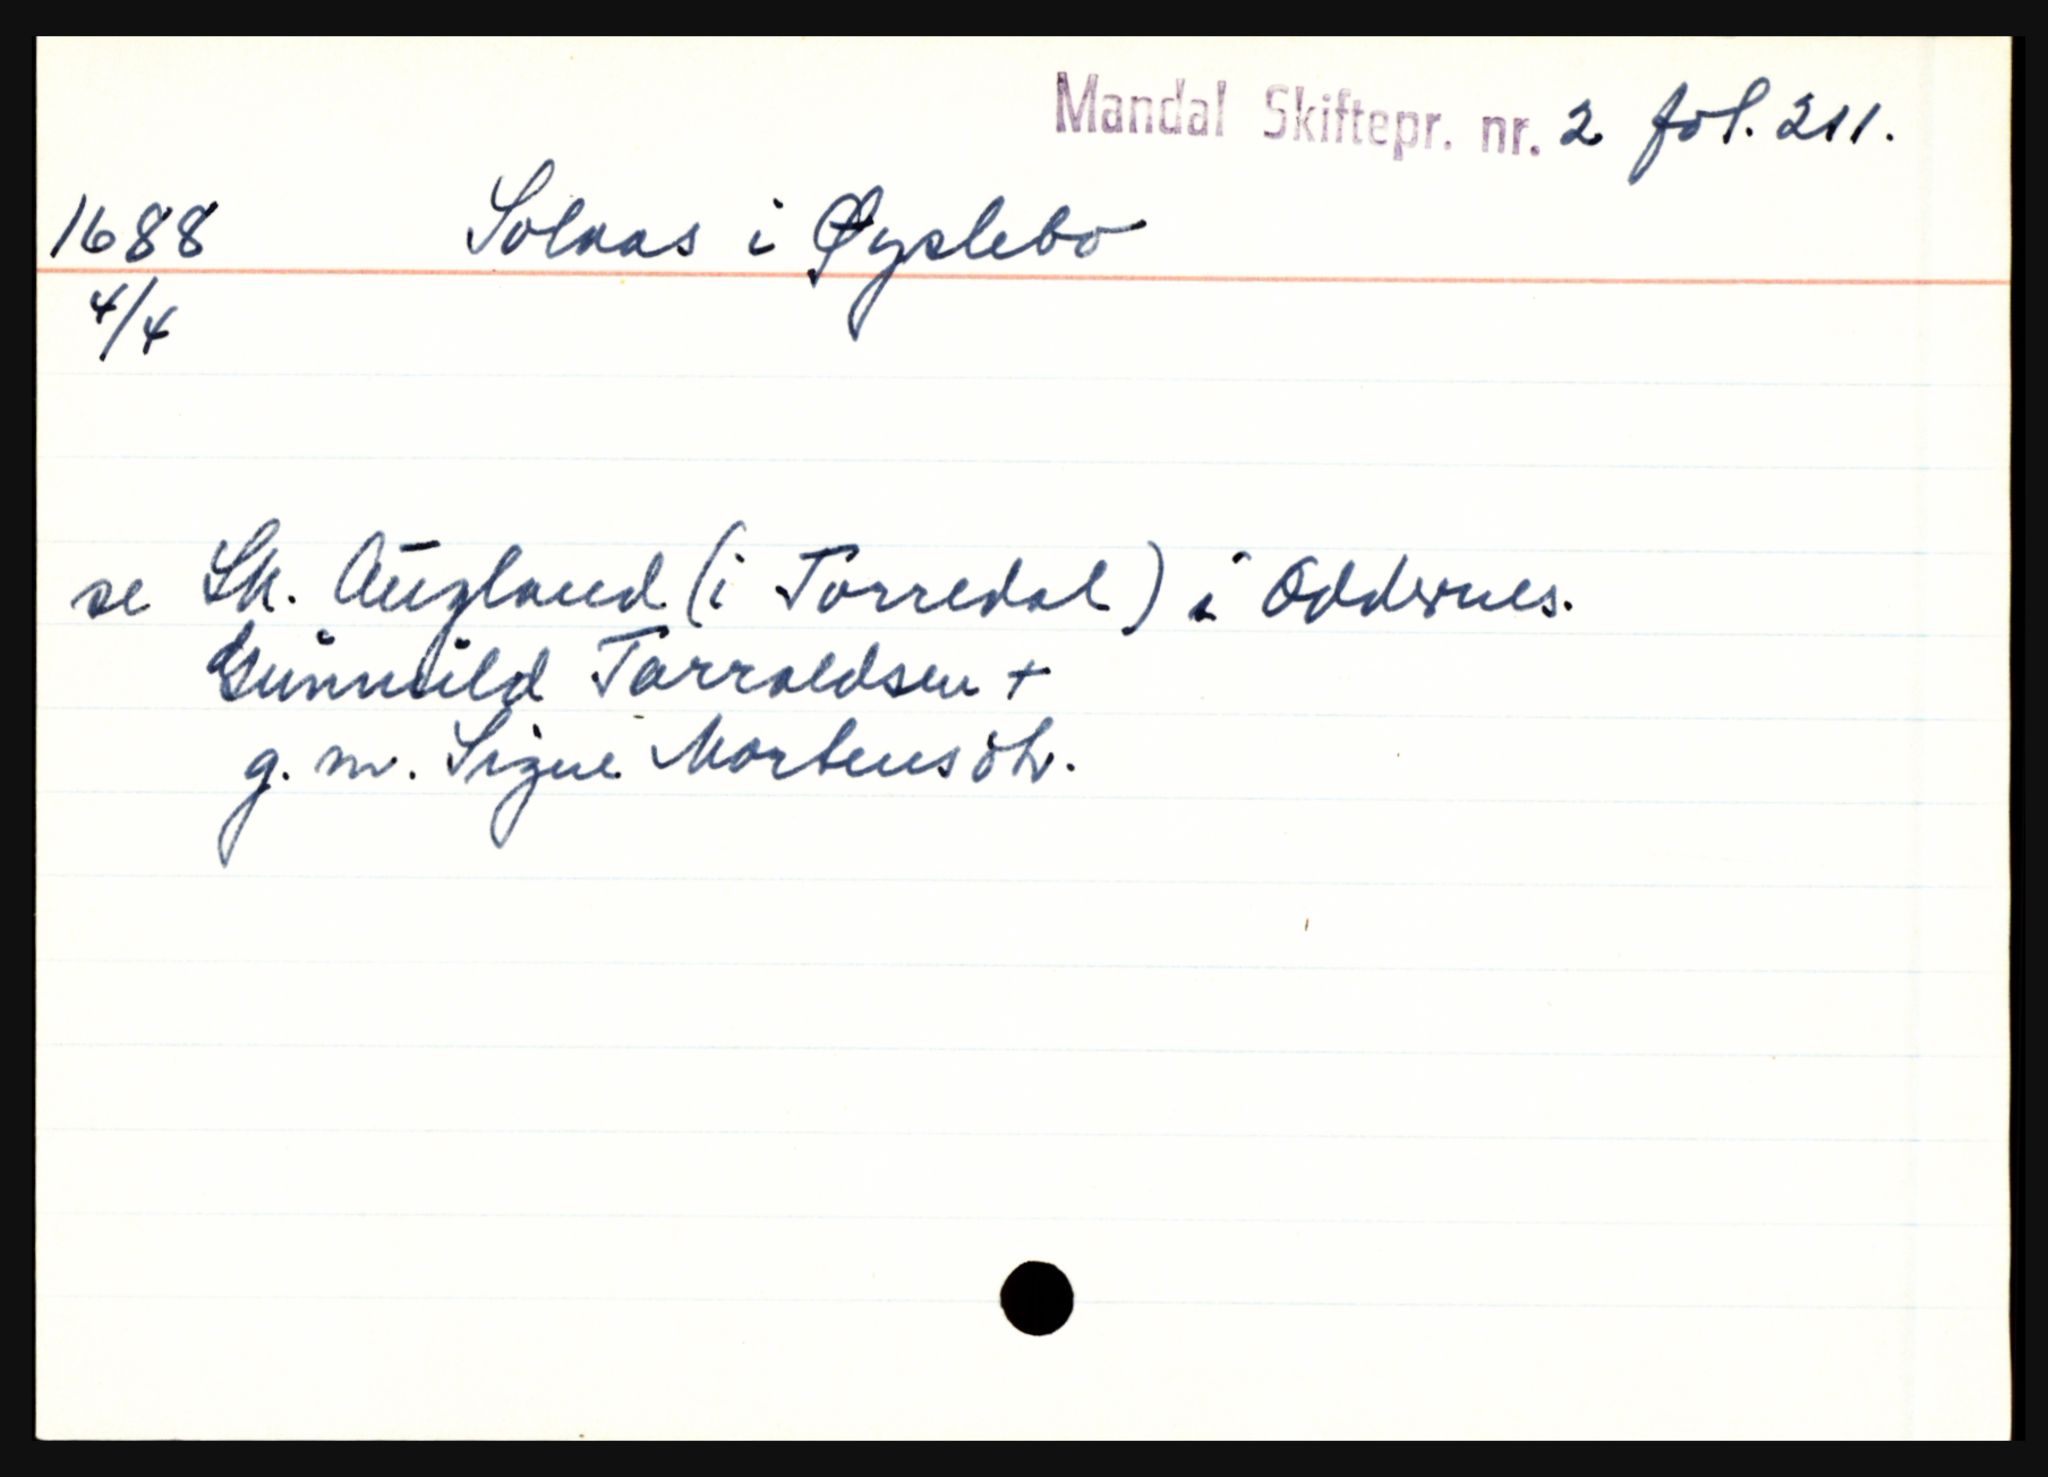 Mandal Skiftepr. nr. 2 fol. 211.
1688 Solaas i Øyslebo
4/4
se Sk. Augland (i Torredal) i Oddernes.
Gunnuld Tarraldsen +
g. m. Signe Mortensdtr.